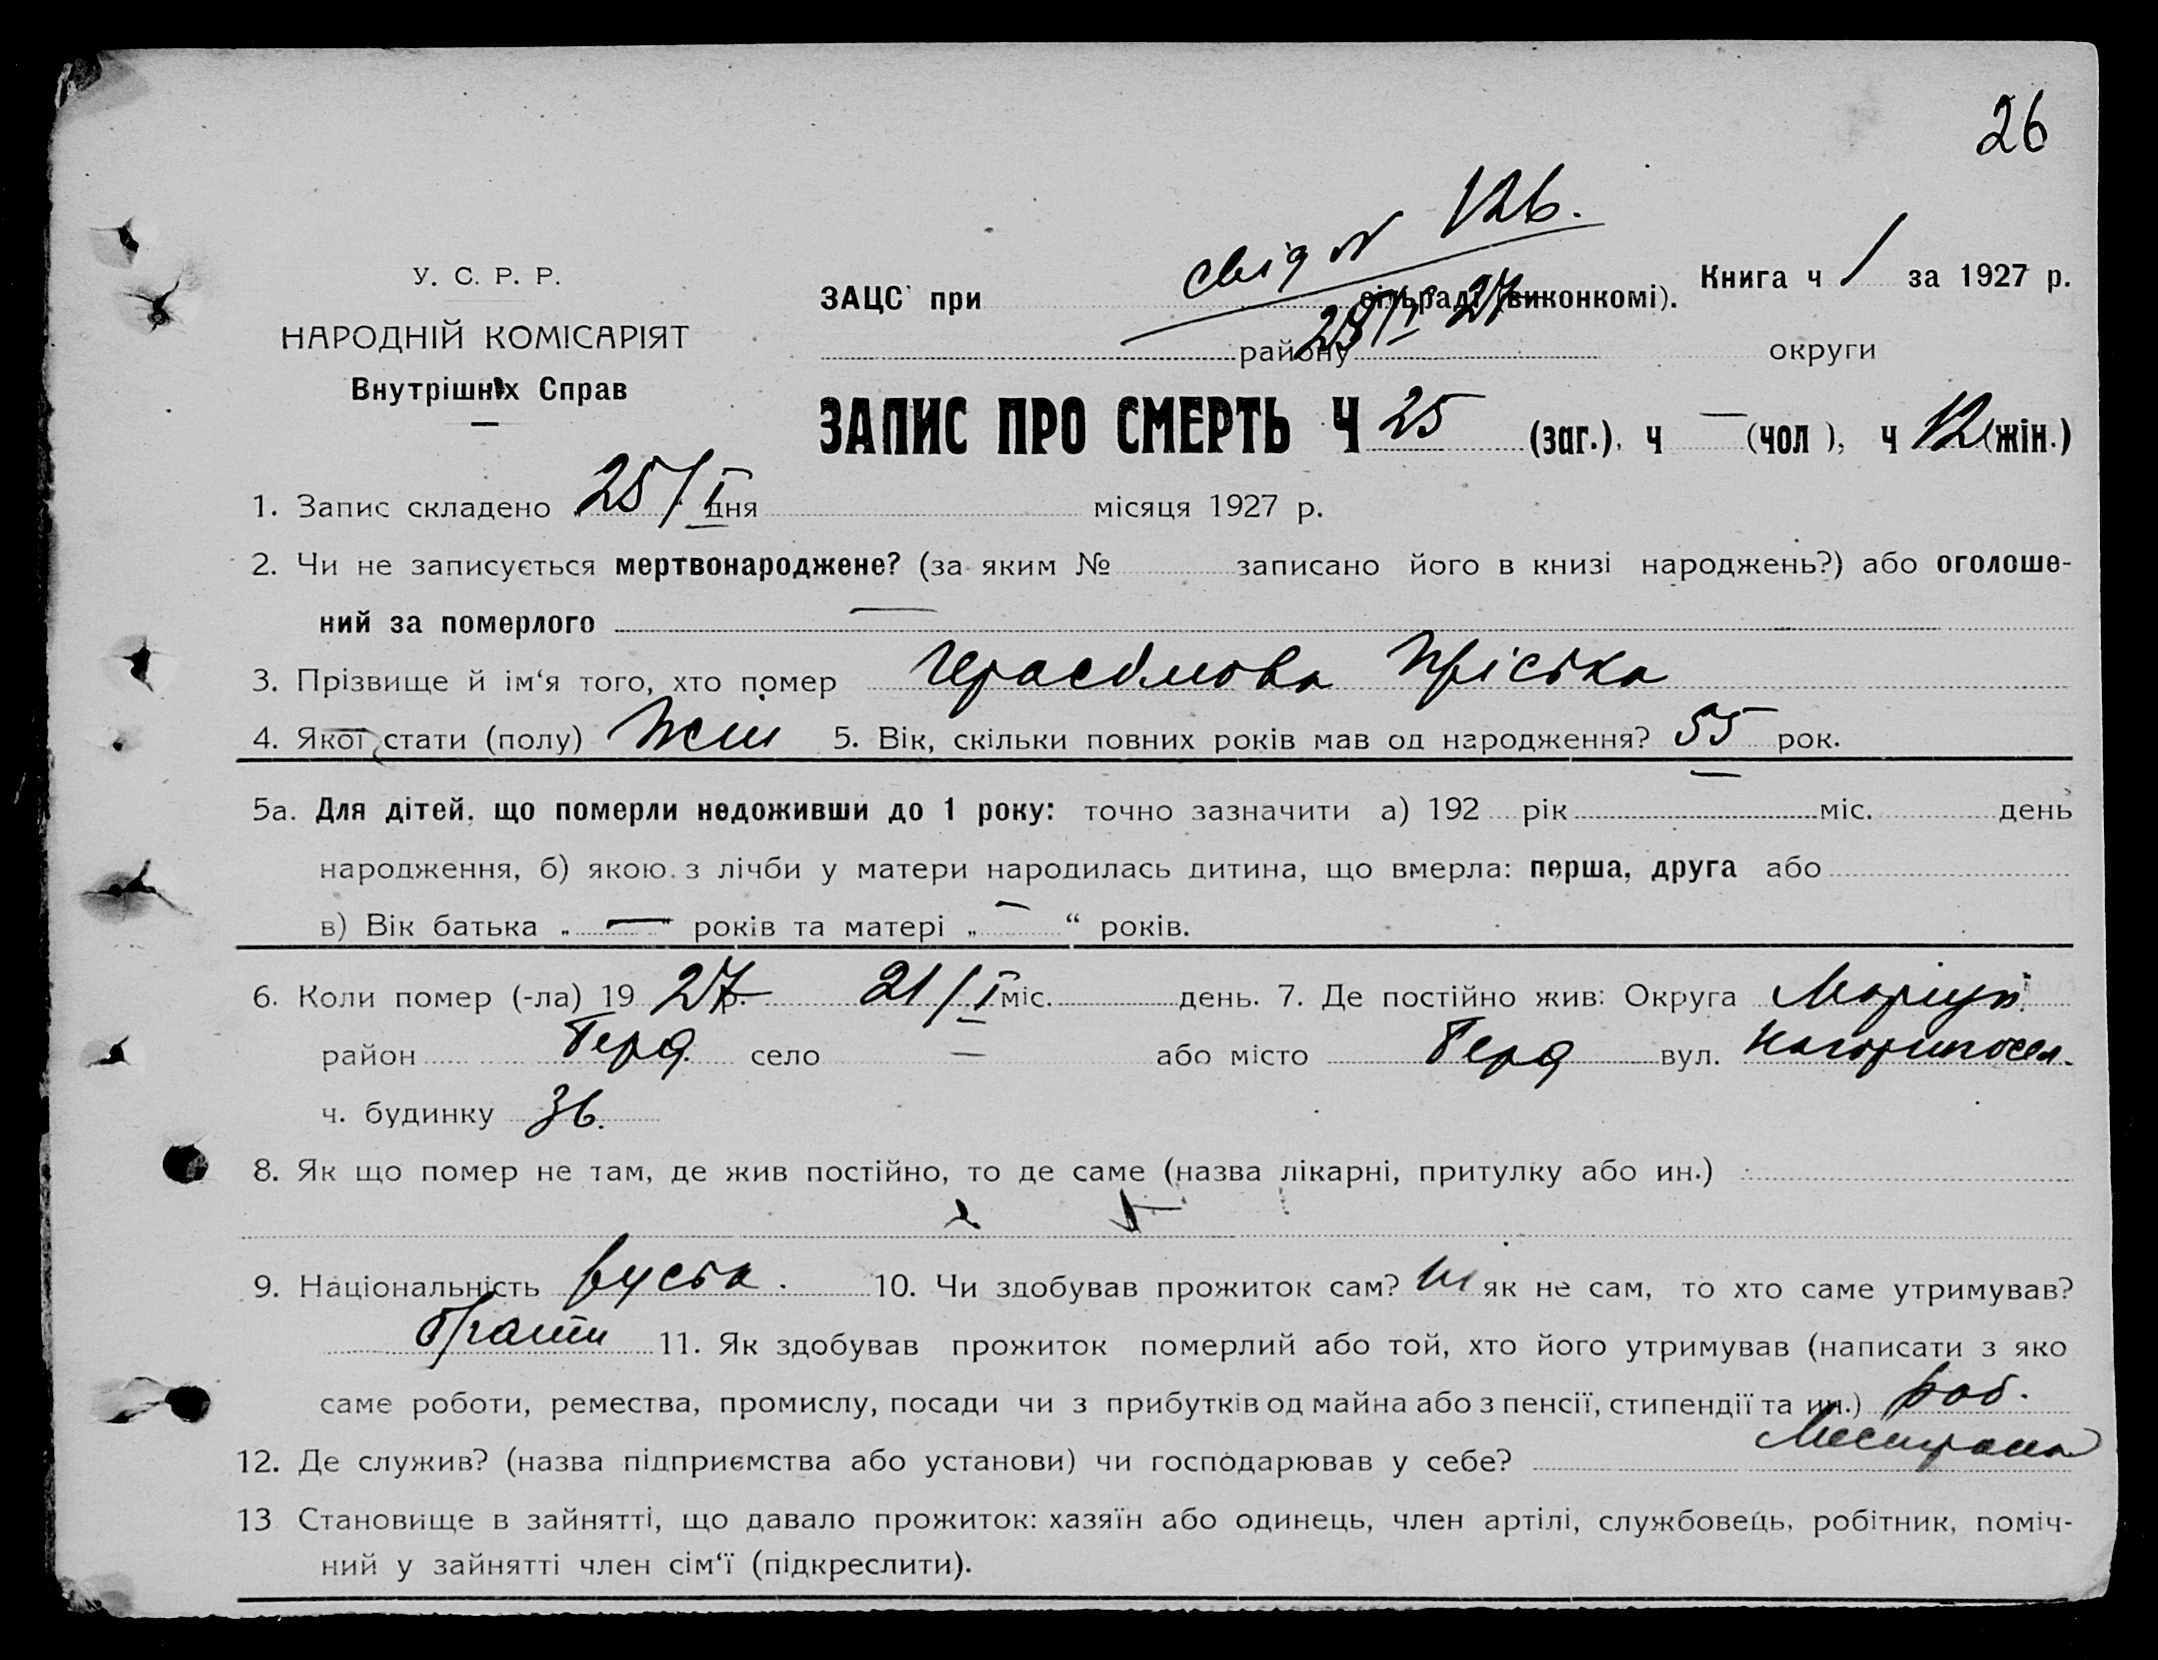 26
свід N 126.
У. С. Р. Р.
ЗАЦС при сільраді (виконкомі). Книга ч 1 за 1927 р.
НАРОДНІЙ КОМІСАРІЯТ
25/I 27
району округи
Внутрішніх Справ
ЗАПИС ПРО СМЕРТЬ Ч 25 (заг.), ч — (чол ), ч 12 (жін.)
1. Запис складено „ 25/I дня місяця 1927 р.
2. Чи не записується мертвонароджене? (за яким № записано його в книзі народжень?) або оголоше-
ний за померлого —
3. Прізвище й ім‘я того, хто помер Герасімова Пріська
4. Якої стати (полу) Жін 5. Вік, скільки повних років мав од народження? 55 рок.
5а. Для дітей, що померли недоживши до 1 року: точно зазначити а) 192 рік — міс. день
народження, б) якою з лічби у матери народилась дитина, що вмерла: перша, друга або
в) Вік батька „ — “ років та матері „ — “ років.
6. Коли помер (-ла) 19 27 р. 21/I міс. день. 7. Де постійно жив: Округа Маріуп.
район Берд. село — або місто Берд вул.
ч. будинку 36.
8. Як що помер не там, де жив постійно, то де саме (назва лікарні, притулку або ин.)
9. Національність руська. 10. Чи здобував прожиток сам? Ні як не сам, то хто саме утримував?
11. Як здобував прожиток померлий або той, хто його утримував (написати з яко
саме роботи, ремества, промислу, посади чи з прибутків од майна або з пенсії, стипендії та ин.) роб.
12. Де служив? (назва підприємства або установи) чи господарював у себе?
13 Становище в зайнятті, що давало прожиток: хазяїн або одинець, член артілі, службовець, робітник, поміч-
ний у зайнятті член сім‘ї (підкреслити).